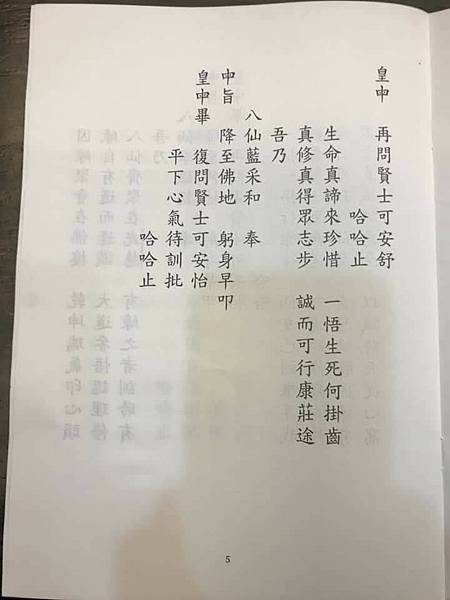 皇申 再問賢士可安舒
哈哈止
生命真諦來珍惜 一悟生死何掛齒
真修真得眾志步 誠而可行康莊途
吾乃
八仙藍采和 奉
申旨 降至佛地 躬身早叩
皇申畢 復問賢士可安怡
平下心氣待訓批
哈哈止
5